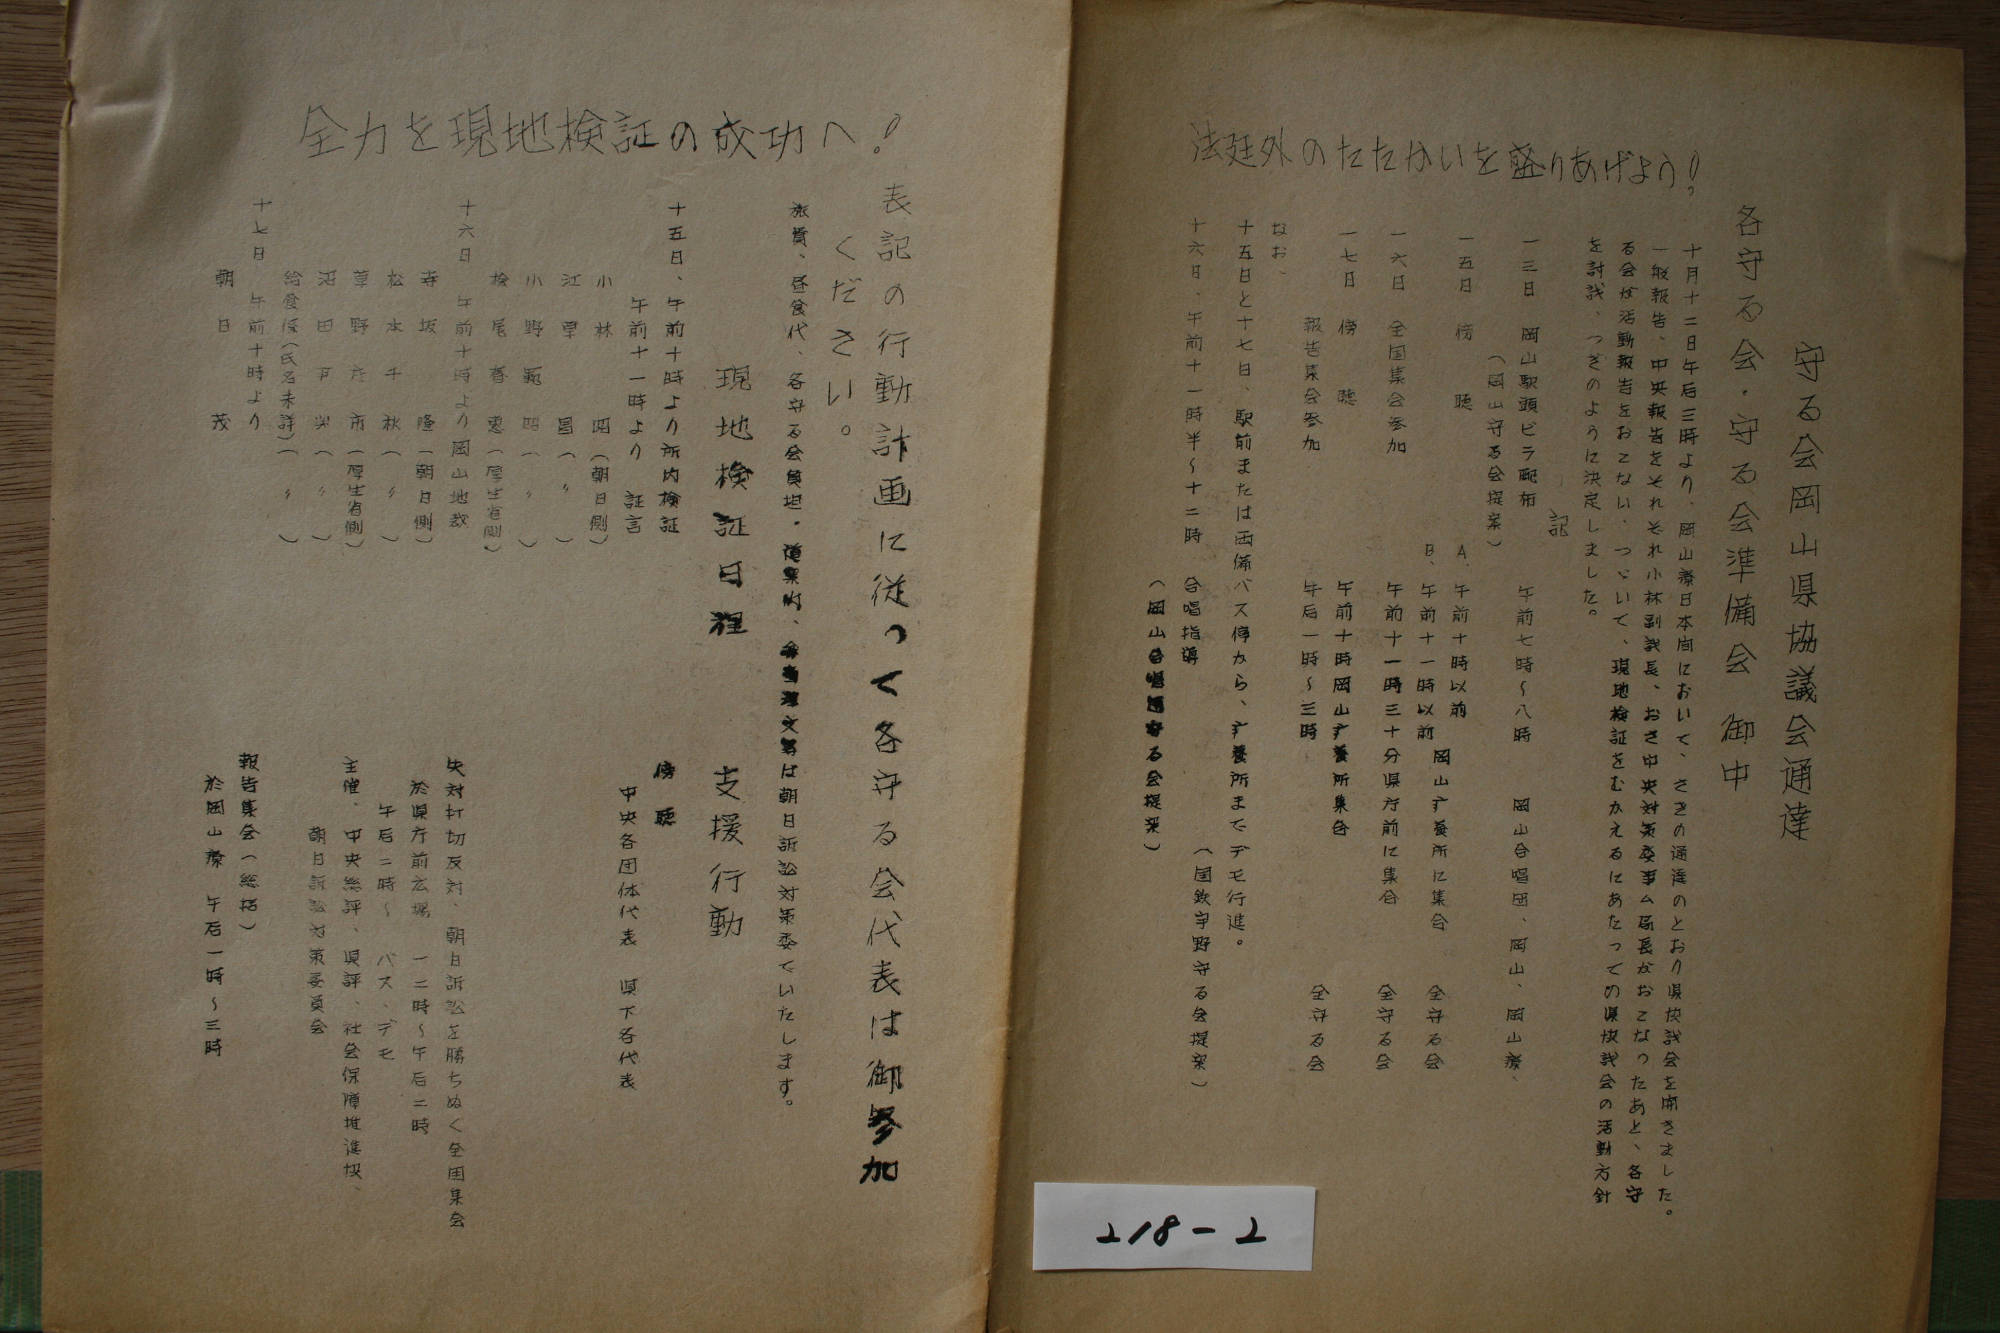 法廷外のたたかいを盛りあげよう!
守る会岡山県協議会通達
各守る会・守る会準備会 御中
十月十二日午后三時より、岡山療日本間において、さきの通達のとおり県协議会を開きました。
一般報告、中央報告をそれぞれ小林副議長、おさ中央対策委事ム局長がおこなったあと、各守
る会が活動報告をおこない、つゞいて、現地検証をむかえるにあたっての県协議会の活動方針
を討議、つぎのように決定しました。
記
一三日 岡山駅頭ビラ配布 午前七時～八時 岡山合唱団、岡山、岡山療、
(岡山守る会提案)
一五日 傍聴 A、午前十時以前
B、午前十一時以前 岡山療養所に集合 全守る会
一六日 全国集会参加 午前十一時三十分県庁前に集合 全守る会
一七日 傍聴 午前十時岡山療養所集合
報告集会参加 午后一時～三時 全守る会
なお、
十五日と十七日、駅前または両備バス停から、療養所までデモ行進。
(国鉄宇野守る会提案)
十六日、午前十一時半～十二時 合唱指導
(岡山合唱団守る会提案)
全力を現地検証の成功へ!
表記の行動計画に従って各守る会代表は御参加
ください。
旅費、昼食代、各守る会負担・道案内、は朝日訴訟対策委でいたします。
現地検証日程 支援行動
十五日、午前十時より所内検証 傍聴
午前十一時より 証言 中央各団体代表 県下各代表
小林 昭(朝日側)
江草 昌(〃)
小野範昭(〃)
桧尾春恵(厚生省側)
十六日 午前十時より岡山地裁 央対打切反対、朝日訴訟を勝ちぬく全国集会
寺坂 隆(朝日側) 於県庁前広場 一二時～午后二時
松本千秋(〃) 午后二時～ バス、デモ
草野 市(厚生省側) 主催、中央総評、県評、社会保障推進协、
沼田 (〃) 朝日訴訟対策委員会
給食係(氏名未詳)(〃)
十七日 午前十時より 報告集会(総括)
朝日 茂 於岡山療 午后一時～三時
218-2